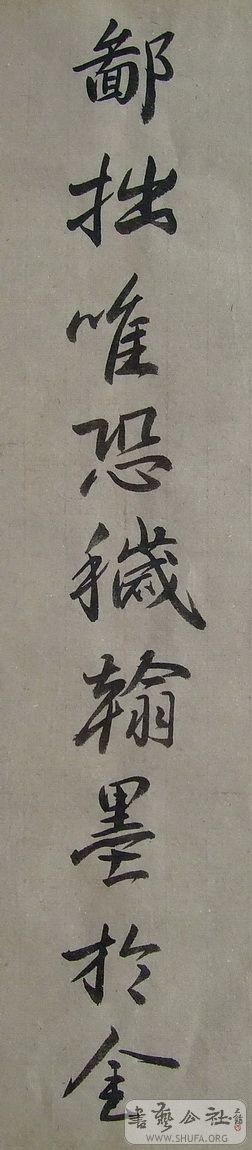 鄙拙唯恐穢翰墨於金
書藝公社
WWW.SHUFA.ORG